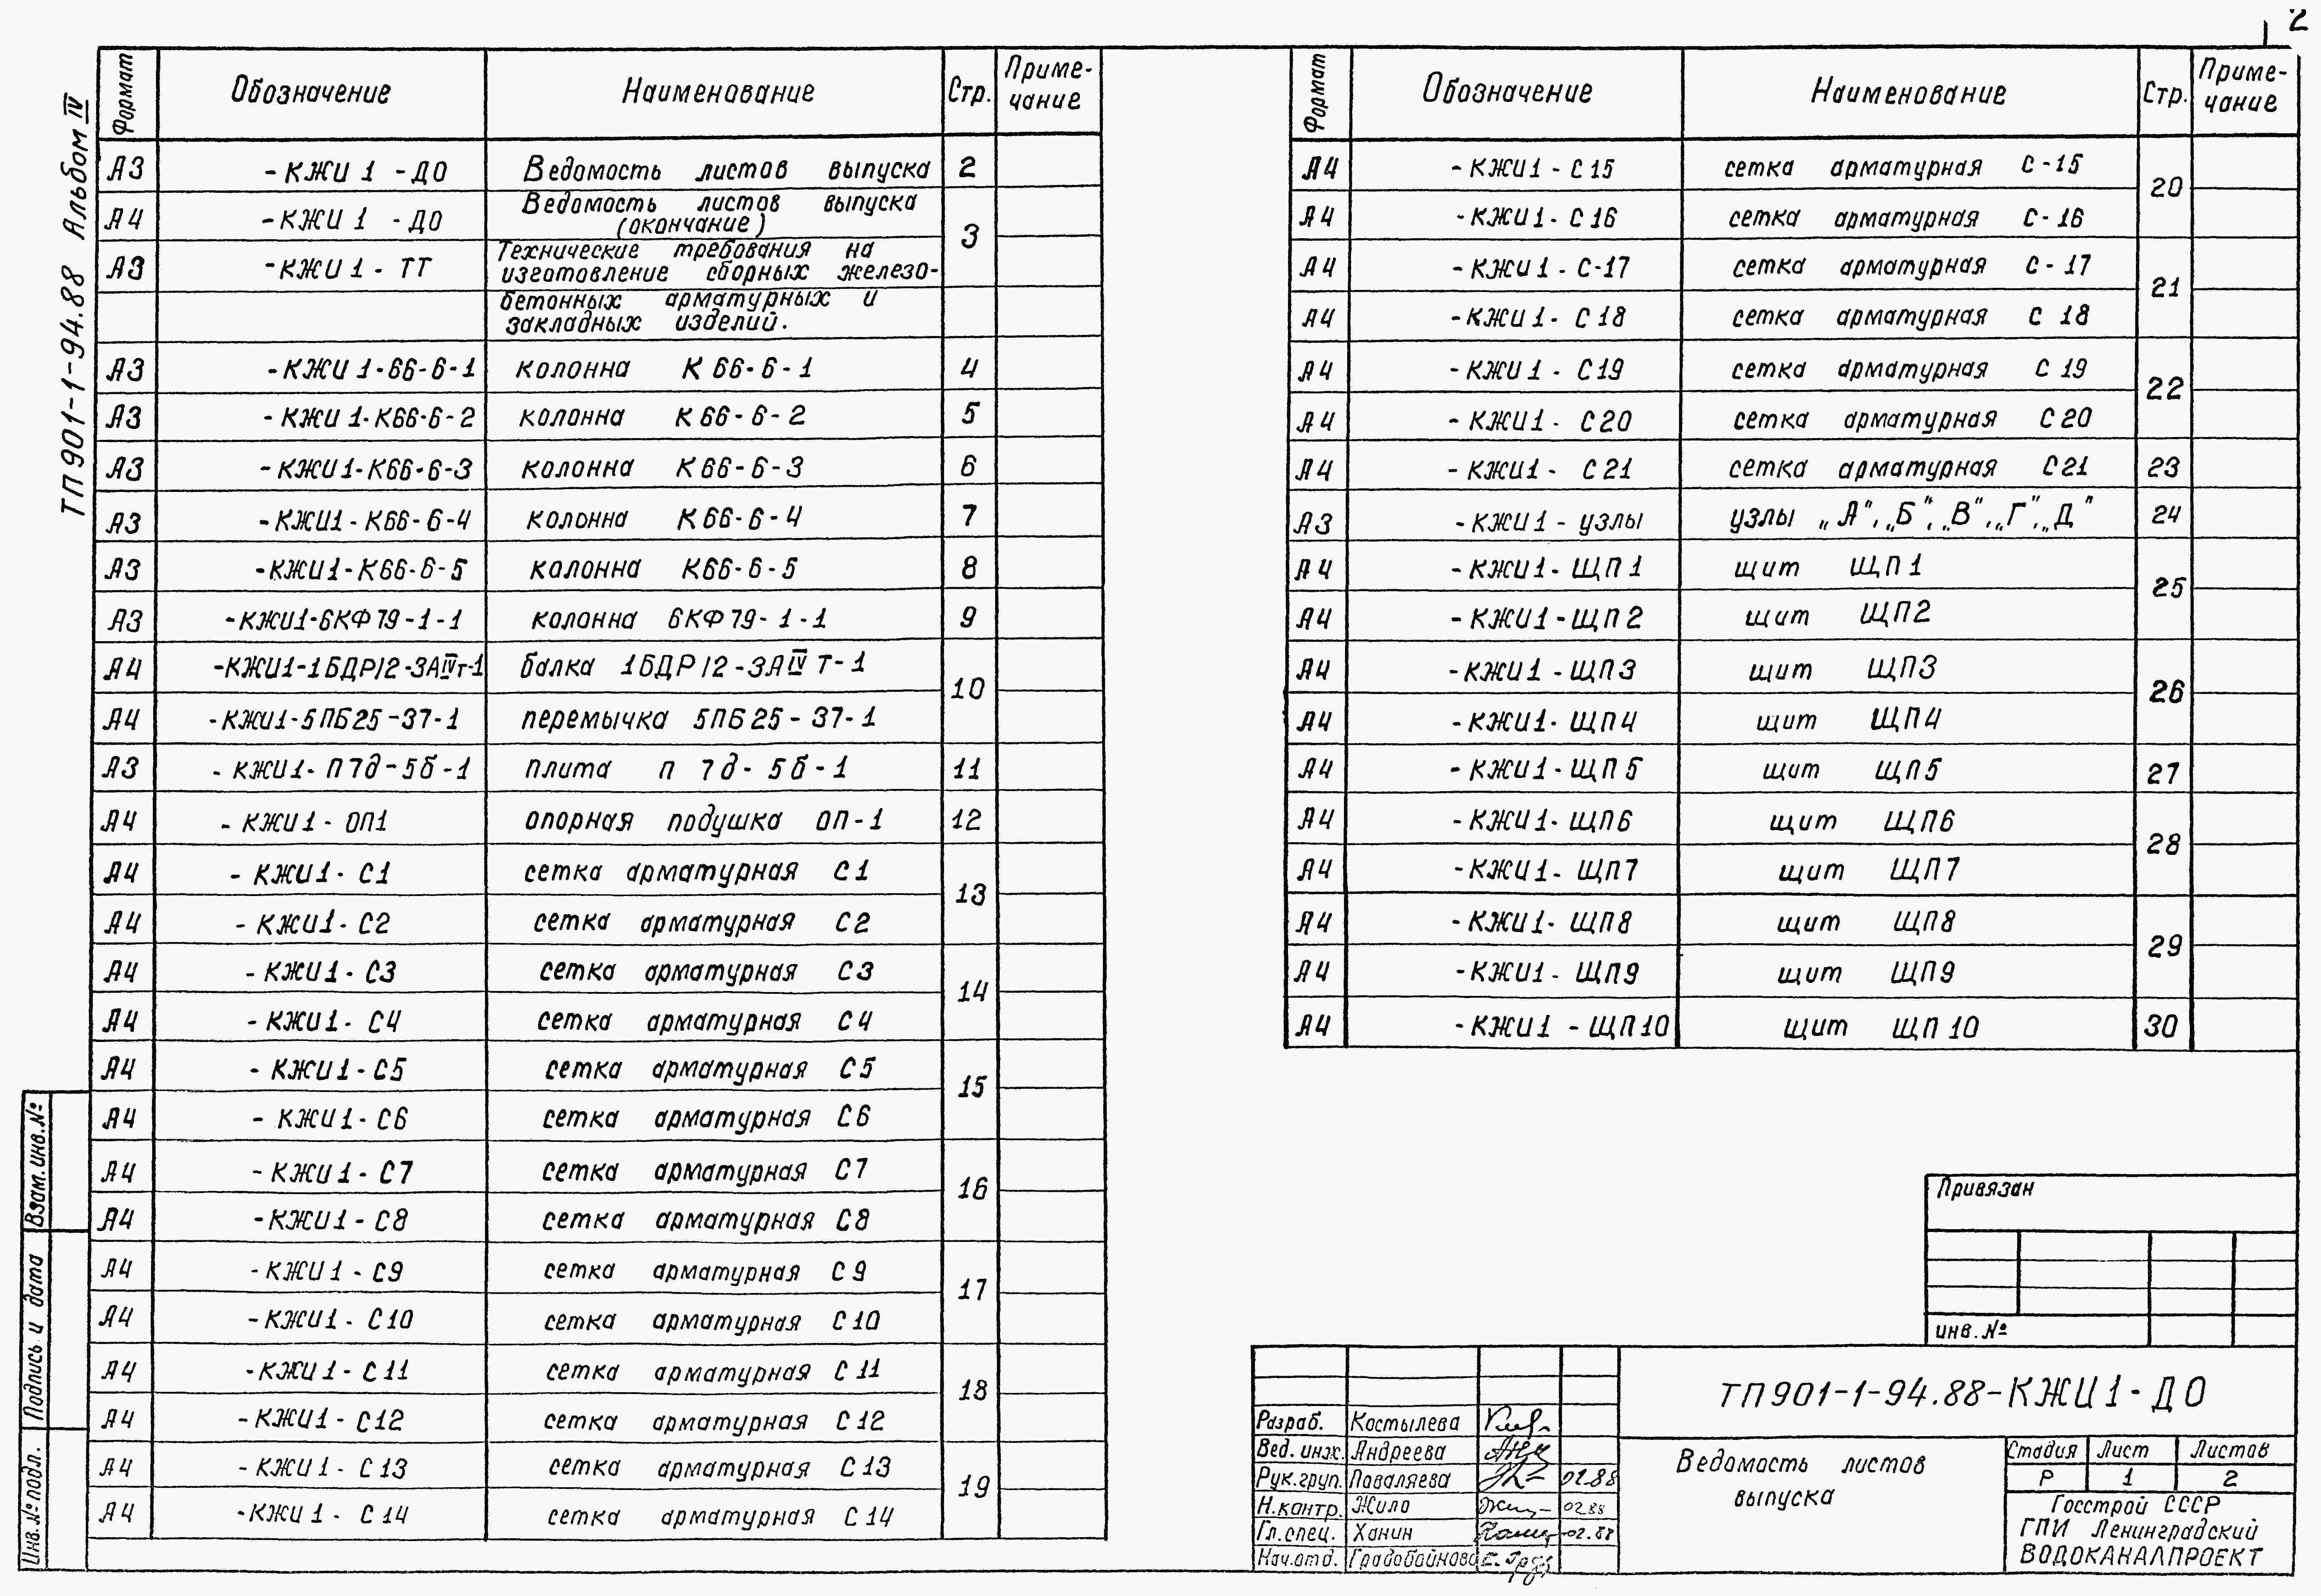 2
ТП901-1-94.88 Альбом IV
Формат Обозначение Наименование Стр. Приме-
чание
А3 -КЖИ1-ДО Ведомость листов выпуска 2
А4 -КЖИ1-ДО Ведомость листов выпуска
(окончание) 3
А3 -КЖИ1-ТТ Технические требования на
изготовление сборных железо-
бетонных арматурных и
закладных изделий.
А3 -КЖИ1-66-6-1 колонна К66-6-1 4
А3 -КЖИ1-К66-6-2 колонна К66-6-2 5
А3 -КЖИ1-К66-6-3 колонна К66-6-3 6
А3 -КЖИ1-К66-6-4 колонна К66-6-4 7
А3 -КЖИ1-К66-6-5 колонна К66-6-5 8
А3 -КЖИ1-6КФ79-1-1 колонна 6КФ79-1-1 9
А4 -КЖИ1-1БДР12-3АIVт-1 балка 1БДР12-3АIVТ-1 10
А4 -КЖИ1-5ПБ25-37-1 перемычка 5ПБ25-37-1
А3 -КЖИ1-П7д-5б-1 плита П7д-5б-1 11
А4 -КЖИ1-ОП1 опорная подушка ОП-1 12
А4 -КЖИ1-С1 сетка арматурная С1 13
А4 -КЖИ1-С2 сетка арматурная С2
А4 -КЖИ1-С3 сетка арматурная С3 14
А4 -КЖИ1-С4 сетка арматурная С4
А4 -КЖИ1-С5 сетка арматурная С5 15
А4 -КЖИ1-С6 сетка арматурная С6
А4 -КЖИ1-С7 сетка арматурная С7 16
А4 -КЖИ1-С8 сетка арматурная С8
А4 -КЖИ1-С9 сетка арматурная С9 17
А4 -КЖИ1-С10 сетка арматурная С10
А4 -КЖИ1-С11 сетка арматурная С11 18
А4 -КЖИ1-С12 сетка арматурная С12
А4 -КЖИ1-С13 сетка арматурная С13 19
А4 -КЖИ1-С14 сетка арматурная С14
Взам.инв.№
Подпись и дата
Инв.№подл.
Формат Обозначение Наименование Стр. Приме-
чание
А4 -КЖИ1-С15 сетка арматурная С-15 20
А4 -КЖИ1-С16 сетка арматурная С-16
А4 -КЖИ1-С-17 сетка арматурная С-17 21
А4 -КЖИ1-С18 сетка арматурная С 18
А4 -КЖИ1-С19 сетка арматурная С 19 22
А4 -КЖИ1-С20 сетка арматурная С20
А4 -КЖИ1-С21 сетка арматурная С21 23
А3 -КЖИ1-узлы узлы „А",„Б",„В",„Г",„Д" 24
А4 -КЖИ1-ЩП1 щит ЩП1 25
А4 -КЖИ1-ЩП2 щит ЩП2
А4 -КЖИ1-ЩП3 щит ЩП3 26
А4 -КЖИ1-ЩП4 щит ЩП4
А4 -КЖИ1-ЩП5 щит ЩП5 27
А4 -КЖИ1-ЩП6 щит ЩП6 28
А4 -КЖИ1-ЩП7 щит ЩП7
А4 -КЖИ1-ЩП8 щит ЩП8 29
А4 -КЖИ1-ЩП9 щит ЩП9
А4 -КЖИ1-ЩП10 щит ЩП10 30
Привязан
инв.№
ТП901-1-94.88-КЖИ1-ДО
Разраб. Костылева
Вед.инж. Андреева
Рук.груп. Поваляева 02.88
Н.контр. Жило 02.88
Гл.спец. Ханин 02.88
Нач.отд. Градобойнова
Ведомость листов
выпуска
Стадия Лист Листов
Р 1 2
Госстрой СССР
ГПИ Ленинградский
ВОДОКАНАЛПРОЕКТ